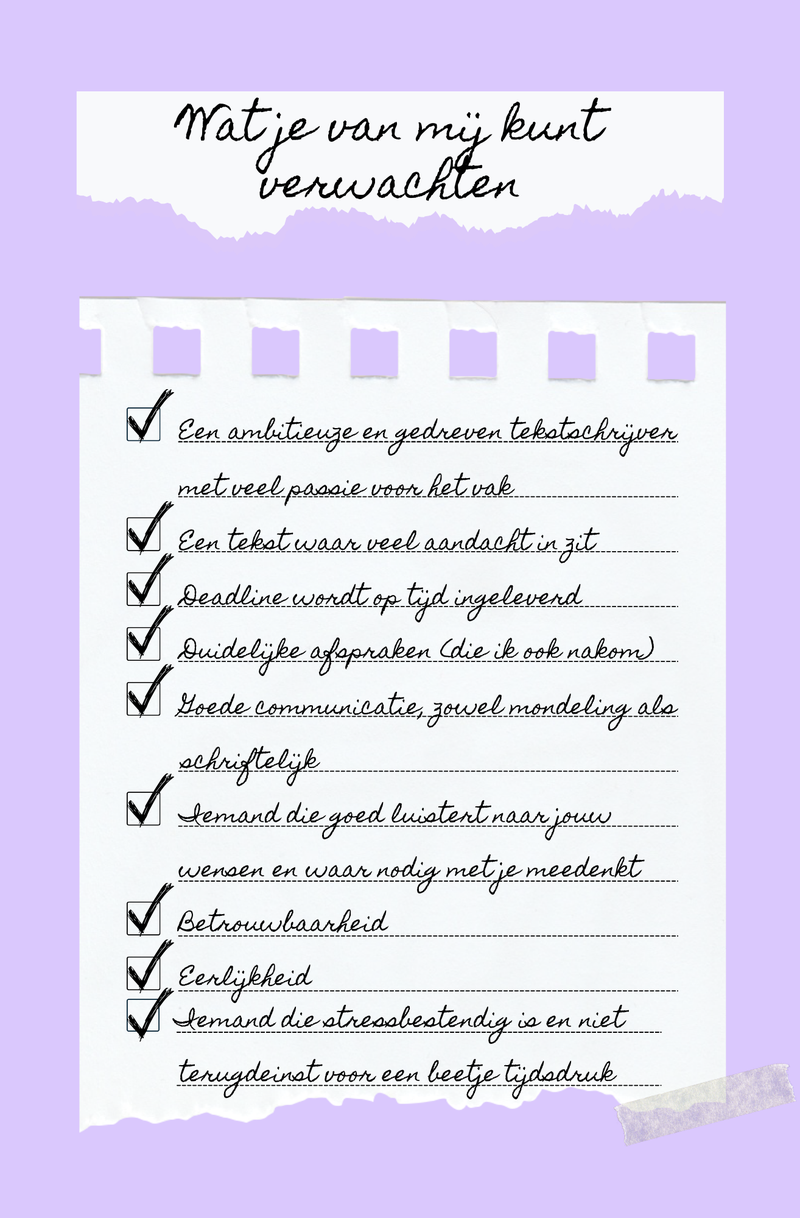 Wat je van mij kunt
verwachten
Een ambitieuze en gedreven tekstschrijver
met veel passie voor het vak
Een tekst waar veel aandacht in zit
Deadline wordt op tijd ingeleverd
Duidelijke afspraken (die ik ook nakom)
Goede communicatie, zowel mondeling als
schriftelijk
Iemand die goed luistert naar jouw
wensen en waar nodig met je meedenkt
Betrouwbaarheid
Eerlijkheid
Iemand die stressbestendig is en niet
terugdeinst voor een beetje tijdsdruk